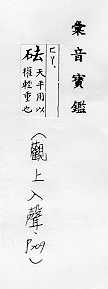 彙音寶鑑
ㄈㄚˋ
砝
天平用以
權輕重也
（觀上入聲，P209）